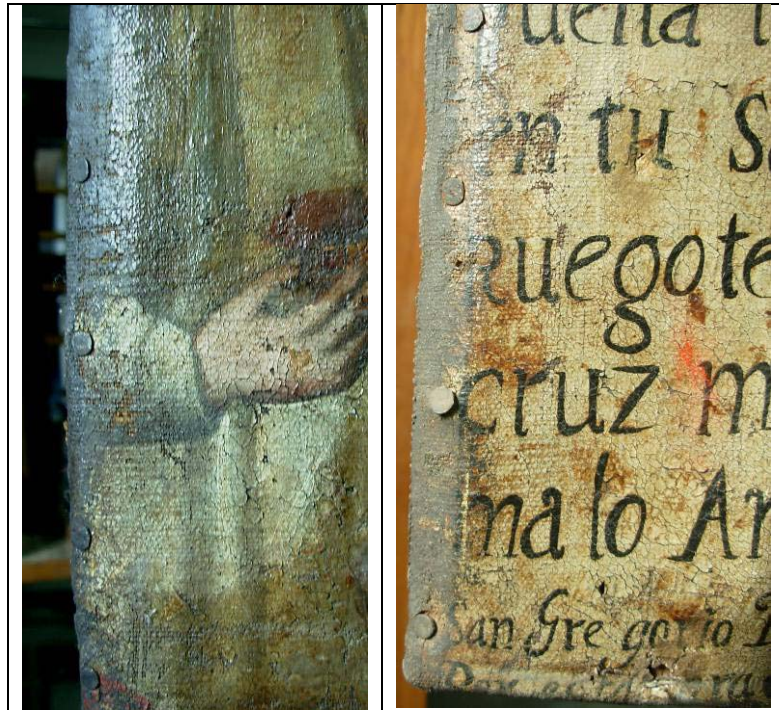 uella
en tu S
Ruegote
cruz m
malo An
San Gregorio